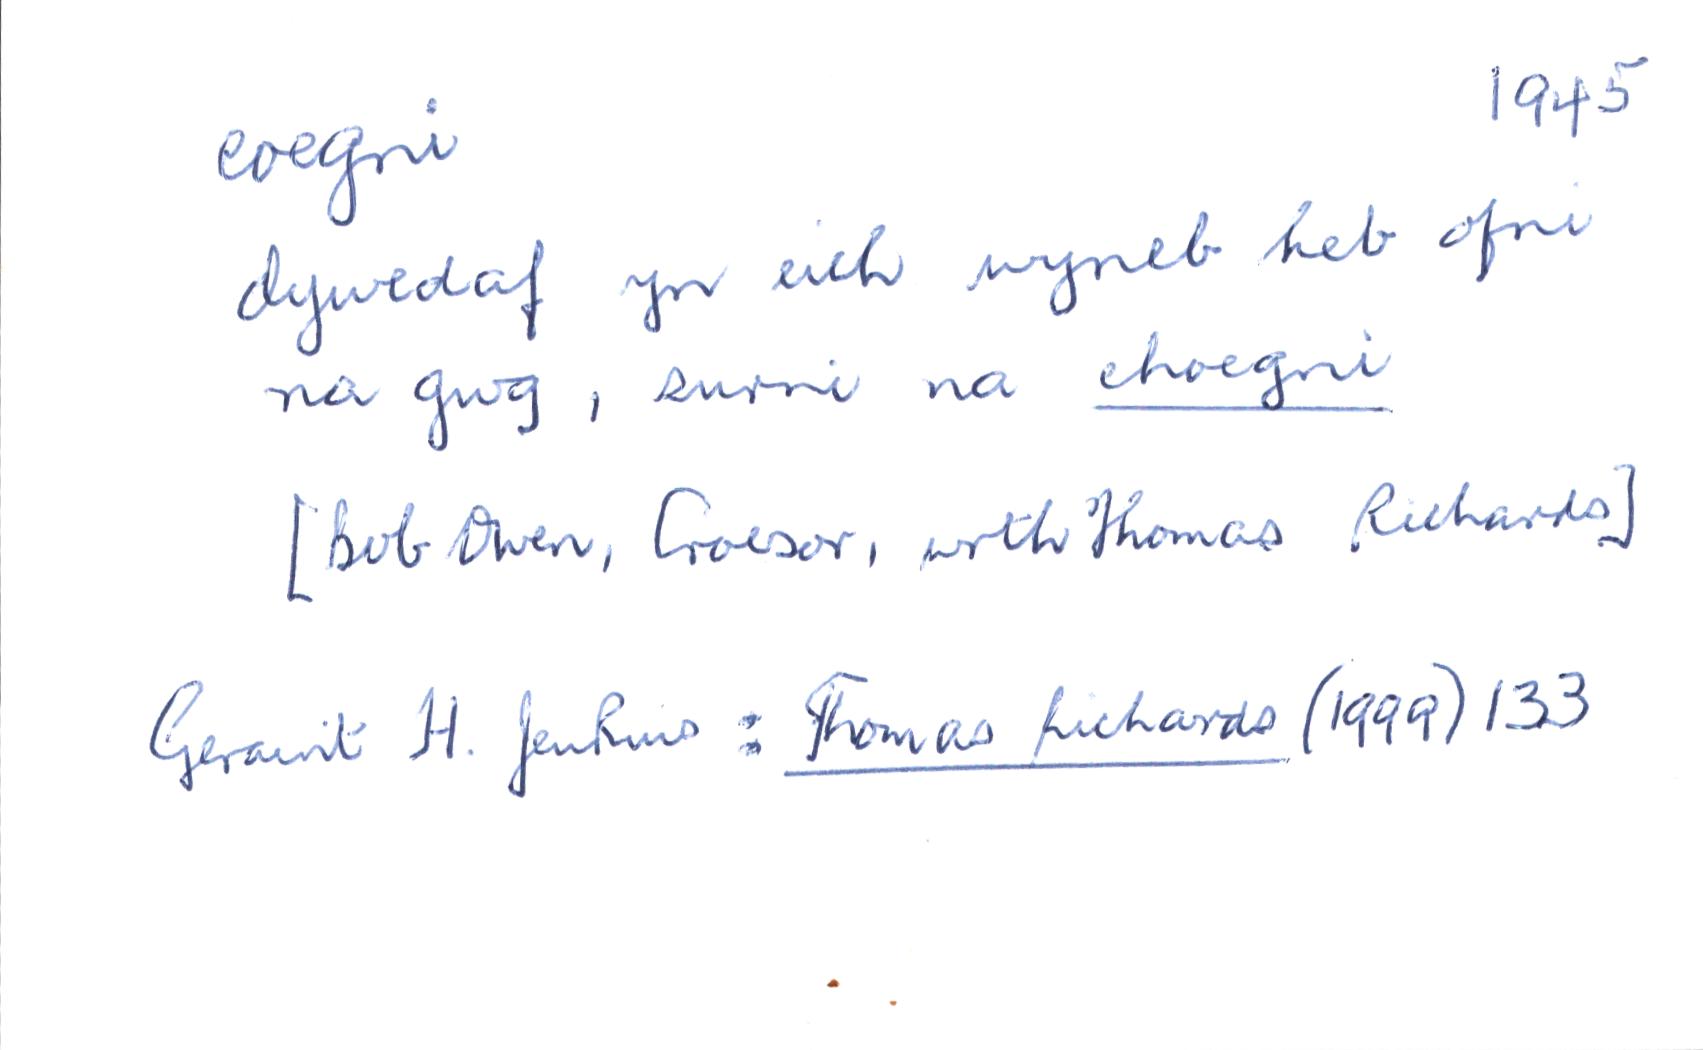 1945
coegni
dywedaf yn eich wyneb heb ofni
na gwg, surni na choegni
[Bob Owen, Croesor, wrth Thomas Richards]
Geraint H. Jenkins : Thomas Richards (1999) 133